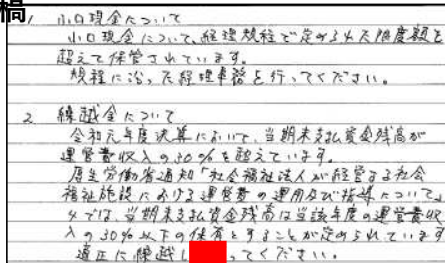 稿
1. 小口現金について
小口現金について、経理規程で定められた限度額を
超えて保管されています。
規程に沿った経理事務を行ってください。
2 繰越金について
令和元年度決算において、当期末支払資金残高が
運営費収入の30%を超えています。
厚生労働省通知「社会福祉法人が経営する社会
福祉施設における運営費の運用及び指導について」
4では、当期末支払資金残高は当該年度の運営費収
入の30%以下の保有とすることが定められています
適正に繰越し ってください。